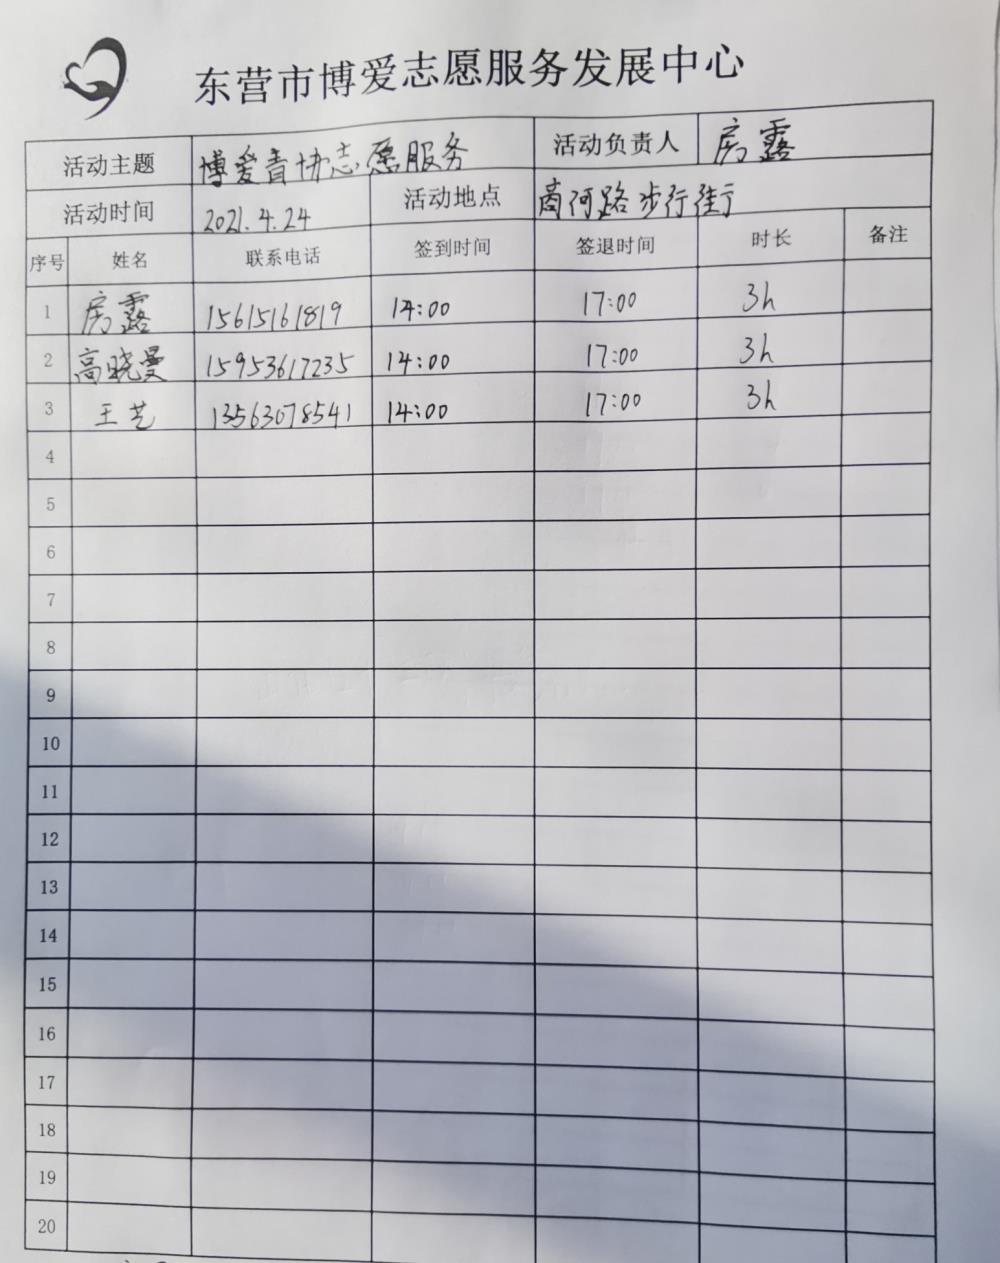 东营市博爱志愿服务发展中心
活动主题 博爱青协志愿服务 活动负责人 房露
活动时间 2021.4.24 活动地点 商河路步行街
序号 姓名 联系电话 签到时间 签退时间 时长 备注
1 房露 15615161819 14:00 17:00 3h
2 高晓曼 15953617235 14:00 17:00 3h
3 王艺 13563078541 14:00 17:00 3h
4
5
6
7
8
9
10
11
12
13
14
15
16
17
18
19
20